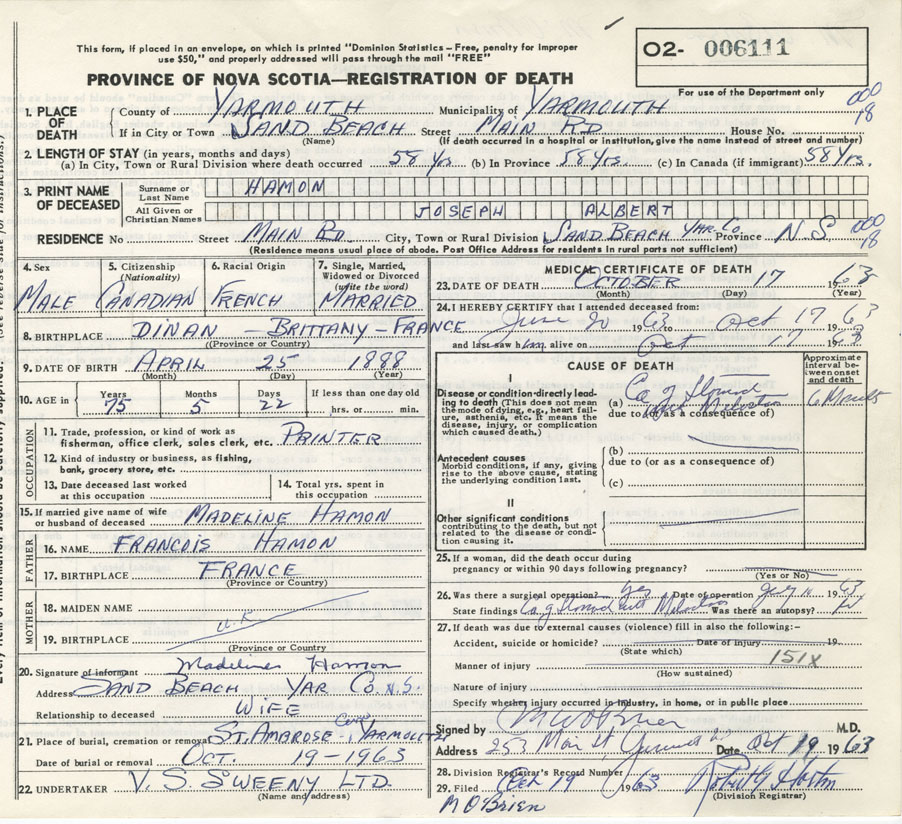 This form, if placed in an envelope, on which is printed "Dominion Statistics – Free, penalty for improper
use $50," and properly addressed will pass through the mail "FREE"
PROVINCE OF NOVA SCOTIA—REGISTRATION OF DEATH
O2- 006111
For use of the Department only
1. PLACE OF DEATH
County of YARMOUTH Municipality of YARMOUTH
000
18
If in City or Town SAND BEACH Street MAIN RD House No.
(Name) (If death occurred in a hospital or institution, give the name instead of street and number)
2. LENGTH OF STAY (in years, months and days)
(a) In City, Town or Rural Division where death occurred 58 Yrs (b) In Province 58 Yrs. (c) In Canada (if immigrant) 58 Yrs.
3. PRINT NAME OF DECEASED
Surname or Last Name HAMON
All Given or Christian Names JOSEPH ALBERT
RESIDENCE No Street MAIN RD City, Town or Rural Division SAND BEACH YAR. CO. Province N.S
000
18
(Residence means usual place of abode. Post Office Address for residents in rural parts not sufficient)
4. Sex
MALE
5. Citizenship (Nationality)
CANADIAN
6. Racial Origin
FRENCH
7. Single, Married, Widowed or Divorced (write the word)
MARRIED
8. BIRTHPLACE DINAN – BRITTANY – FRANCE
(Province or Country)
9. DATE OF BIRTH APRIL 25 1888
(Month) (Day) (Year)
10. AGE in Years Months Days If less than one day old
75 5 22 hrs. or min.
OCCUPATION
11. Trade, profession or kind of work as
fisherman, office clerk, sales clerk, etc. PRINTER
12. Kind of industry or business, as fishing,
bank, grocery store, etc.
13. Date deceased last worked
at this occupation
14. Total yrs. spent in
this occupation
15. If married give name of wife
or husband of deceased MADELINE HAMON
FATHER
16. NAME FRANCOIS HAMON
17. BIRTHPLACE FRANCE
(Province or Country)
MOTHER
18. MAIDEN NAME
U.K
19. BIRTHPLACE
(Province or Country)
20. Signature of informant Madeline Hamon
Address SAND BEACH YAR CO. N.S.
Relationship to deceased WIFE
21. Place of burial, cremation or removal ST. AMBROSE Cem. YARMOUTH
Date of burial or removal OCT. 19-1963
22. UNDERTAKER V. S. SWEENY LTD.
(Name and address)
MEDICAL CERTIFICATE OF DEATH
23. DATE OF DEATH OCTOBER 17 1963
(Month) (Day) (Year)
24. I HEREBY CERTIFY that I attended deceased from:
June 20 1963 to Oct 17 1963
and last saw him alive on Oct 17 1963
CAUSE OF DEATH
Approximate interval between onset and death
I
Disease or condition directly leading
to death (This does not mean
the mode of dying, e.g., heart failure,
asthenia, etc. It means the
disease, injury, or complication
which caused death.)
(a) Ca of
due to (or as a consequence of)
6
(b)
due to (or as a consequence of)
Antecedent causes
Morbid conditions, if any, giving
rise to the above cause, stating
the underlying condition last.
(c)
II
Other significant conditions
contributing to the death, but not
related to the disease or condition
causing it.
25. If a woman, did the death occur during
pregnancy or within 90 days following pregnancy?
(Yes or No)
26. Was there a surgical operation? yes Date of operation 1963
State findings Ca of Was there an autopsy?
27. If death was due to external causes (violence) fill in also the following:–
Accident, suicide or homicide? Date of injury 19
(State which)
151X
Manner of injury
(How sustained)
Nature of injury
Specify whether injury occurred in industry, in home, or in public place
Signed by M W O'Brien M.D.
Address 253 Main St, Date Oct 19 1963
28. Division Registrar's Record Number
29. Filed Oct 19 1963
(Division Registrar)
M O'Brien